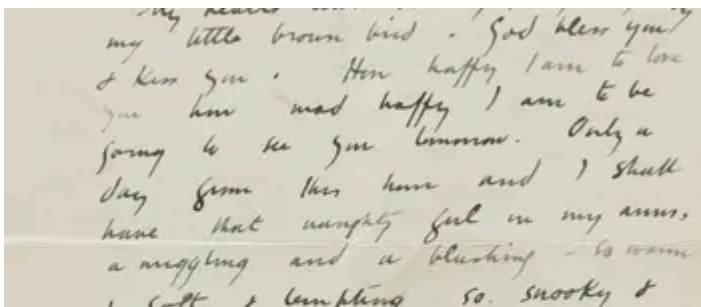 my little brown bird. God bless you
& kiss you. How happy I am to love
you how mad happy I am to be
going to see you tomorrow. Only a
day from this hour and I shall
have that naughty girl in my arms,
a niggling and a blushing - so warm
& soft & tempting so snooky &